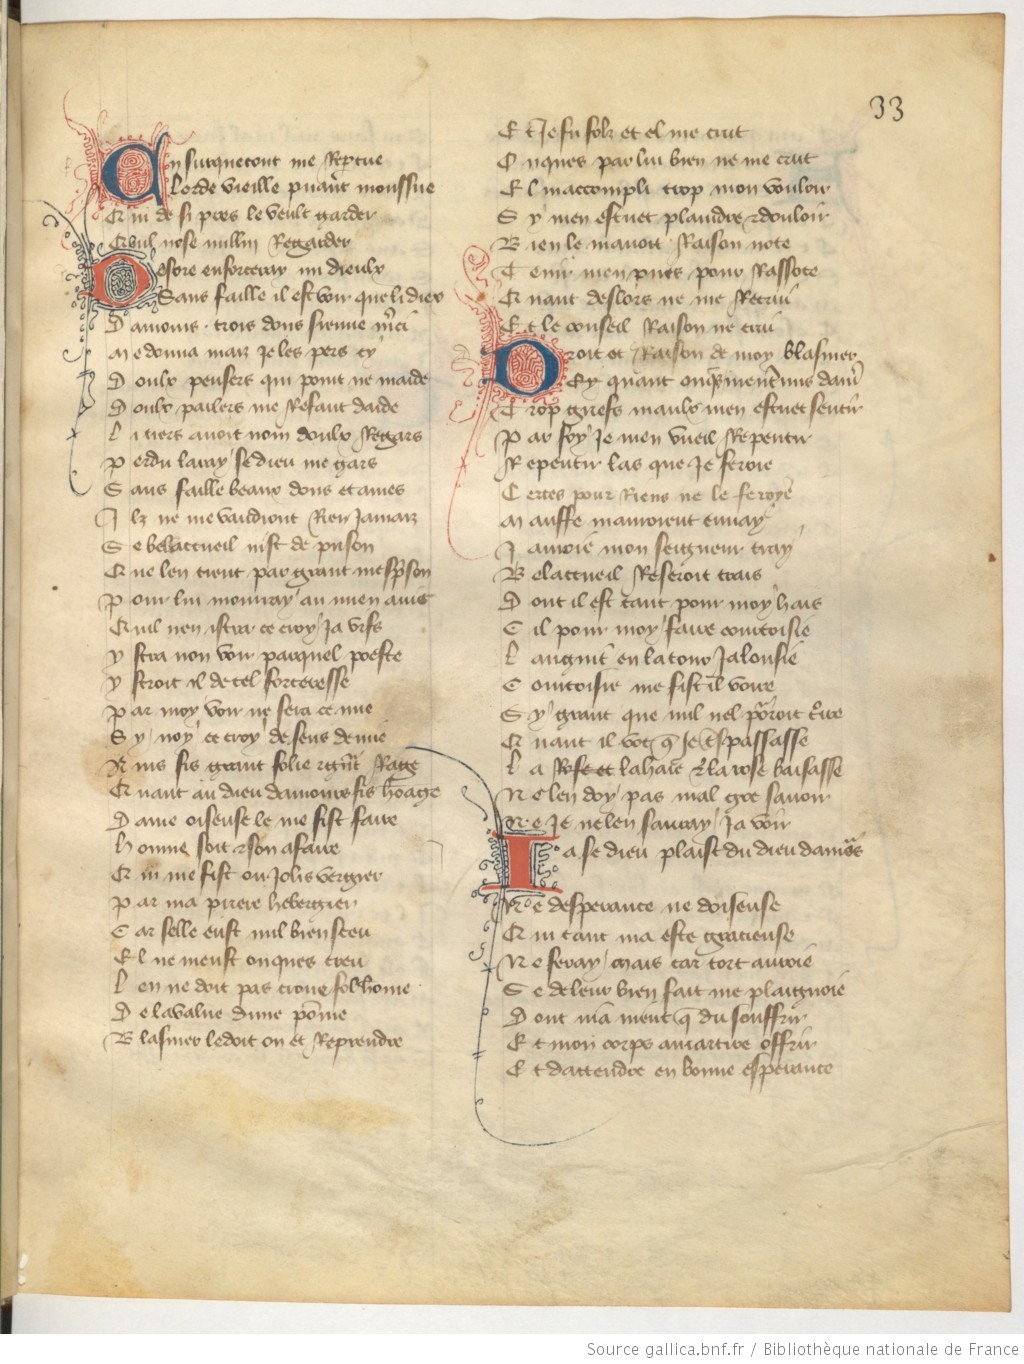 33
En surquetout me Repreue
Lorde vieille puant moussue
Qui de si pres le veult garder
Qu'il nose nulluy Regarder
Desore enforceray mi dieulx
Sans faille il est voir que li diex
Damours trois dons sienne mci
Me donna maiz je les pers cy
Doulx pensers qui point ne maide
Doulx parlers me Refaut daide
Li tiers auoit nom doulx Regars
Perdu lavay se dieu me gars
Sans faille beaux dons et a mes
Ilz ne me vauldront Rien jamaiz
Se belaccueil nist de prison
Que len tient par grant mesprison
Pour lui mourray au mien auis
Quil nen istra ce croy ja vifs
Ystra non voir par quel poeste
Ystroit il de tel forteresse
Par moy voir ne sera ce mie
Sy noy ce croy de sens demie
Ains fis grant folie Rage
Quant au dieu damours fis homage
Dame oiseuse le me fist faire
Honnie soit et son afaire
Qui me fist ou jolis vergier
Par ma priere hebergier
Car selle eust nul bien sceu
El ne meust onques creu
Len ne doit pas croire fol home
De la value dune pome
Blasmer le doit on et Reprendre
Et je fu folz et el me crut
Onques par lui bien ne me crut
El maccompli trop mon vouloir
Sy men estuet plaindre et douloir
Bien le mauoit Raison note
Tenir men puis pour Rassote
Quant deslors ne me Recrui
Et le conseil Raison ne crui
Droit et Raison de moy blasmer
Trop griefs maulx men estuet sentir
Par foy je men vueil Repentir
Repentir las que je feroie
Certes pour Riens ne le feroye
Mauffe mauroient enuay
Jauroie mon seigneur tray
Belaccueil Reseroit trais
Dont il est tant pour moy hais
Cil pour moy faire courtoisie
Languit en la tour jalousie
Courtoisie me fist il voire
Sy grant que nul nel porroit croire
Quant il volt que je trespassasse
La Rose et la haie et la rose baisasse
Ne len doy pas mal gre sauoir
Ne je ne len sauray ja voir
Ja se dieu plaist du dieu damours
Ne desperance ne doiseuse
Qui tant ma este gracieuse
Ne feray mais car tort auroie
Se de leur bien fait me plaignoie
Dont ny a ment que du souffrir
Et mon corps a martire offrir
Et dattendre en bonne esperance
Source gallica.bnf.fr / Bibliothèque nationale de France